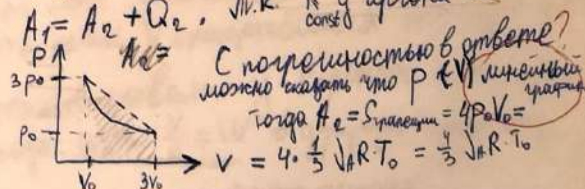 A₁ = A₂ + Q₂.
const
A₂ =
С погрешностью в ответе?
можно сказать что p(V) линейный
график
тогда A₂ = Sтрапеции = 4p₀V₀ =
= 4·1/3 νₐR·T₀ = 4/3 νₐR·T₀
P
3p₀
p₀
V₀
3V₀
V